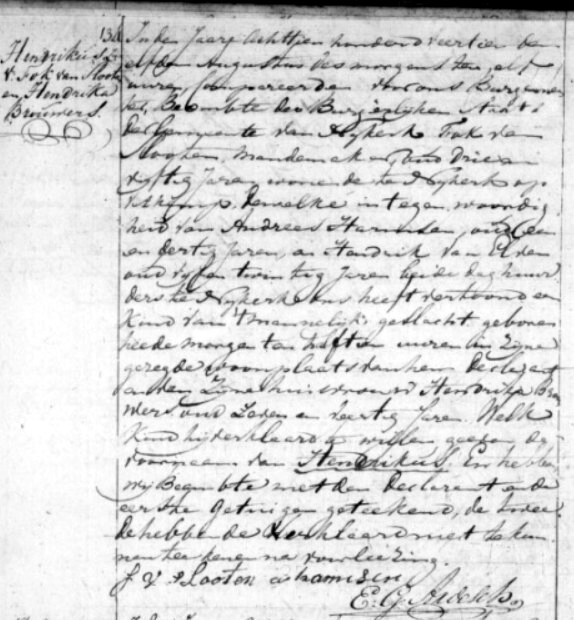 130
Hendrikus Zn
v. Fok van Slooten
en Hendrika
Brouwers.
In den Jaare achttien honderd veertien den
elfden Augustus des morgens ten elf
uuren, Compareerde voor ons Burgemees
ter, Beambte des Burgerlijken Staats
der Gemeente van Nijkerk Fok van
Slooten, mandemaker, oud drie en
vyftig Jaren, wonende te Nijkerk op
demelke in tegenwoordig
heid van Andrees Harmsen, oud een
en dertig Jaren, en Hendrik van Elden
oud vyf en twintig Jaren beide daghuur
ders te Nijkerk ons heeft vertoond een
Kind van 't mannelijk geslacht geboren
heede morgen ten half tien uuren in zijne
gezegde woonplaats van hem Declarant
en den Zijne huisvrouw Hendrika Brou
wers oud Zeven en veertig Jaren. Welk
Kind hij verklaarde te willen geeven de
voornaam van Hendrikus. En hebben
wy Beambte met den Declarant en de
eerste getuigen geteekend, de twee
de hebbende verklaard niet te kun
nen teekenen na voorleezing.
F V Slooten a harmsen
E. G. Ardesch